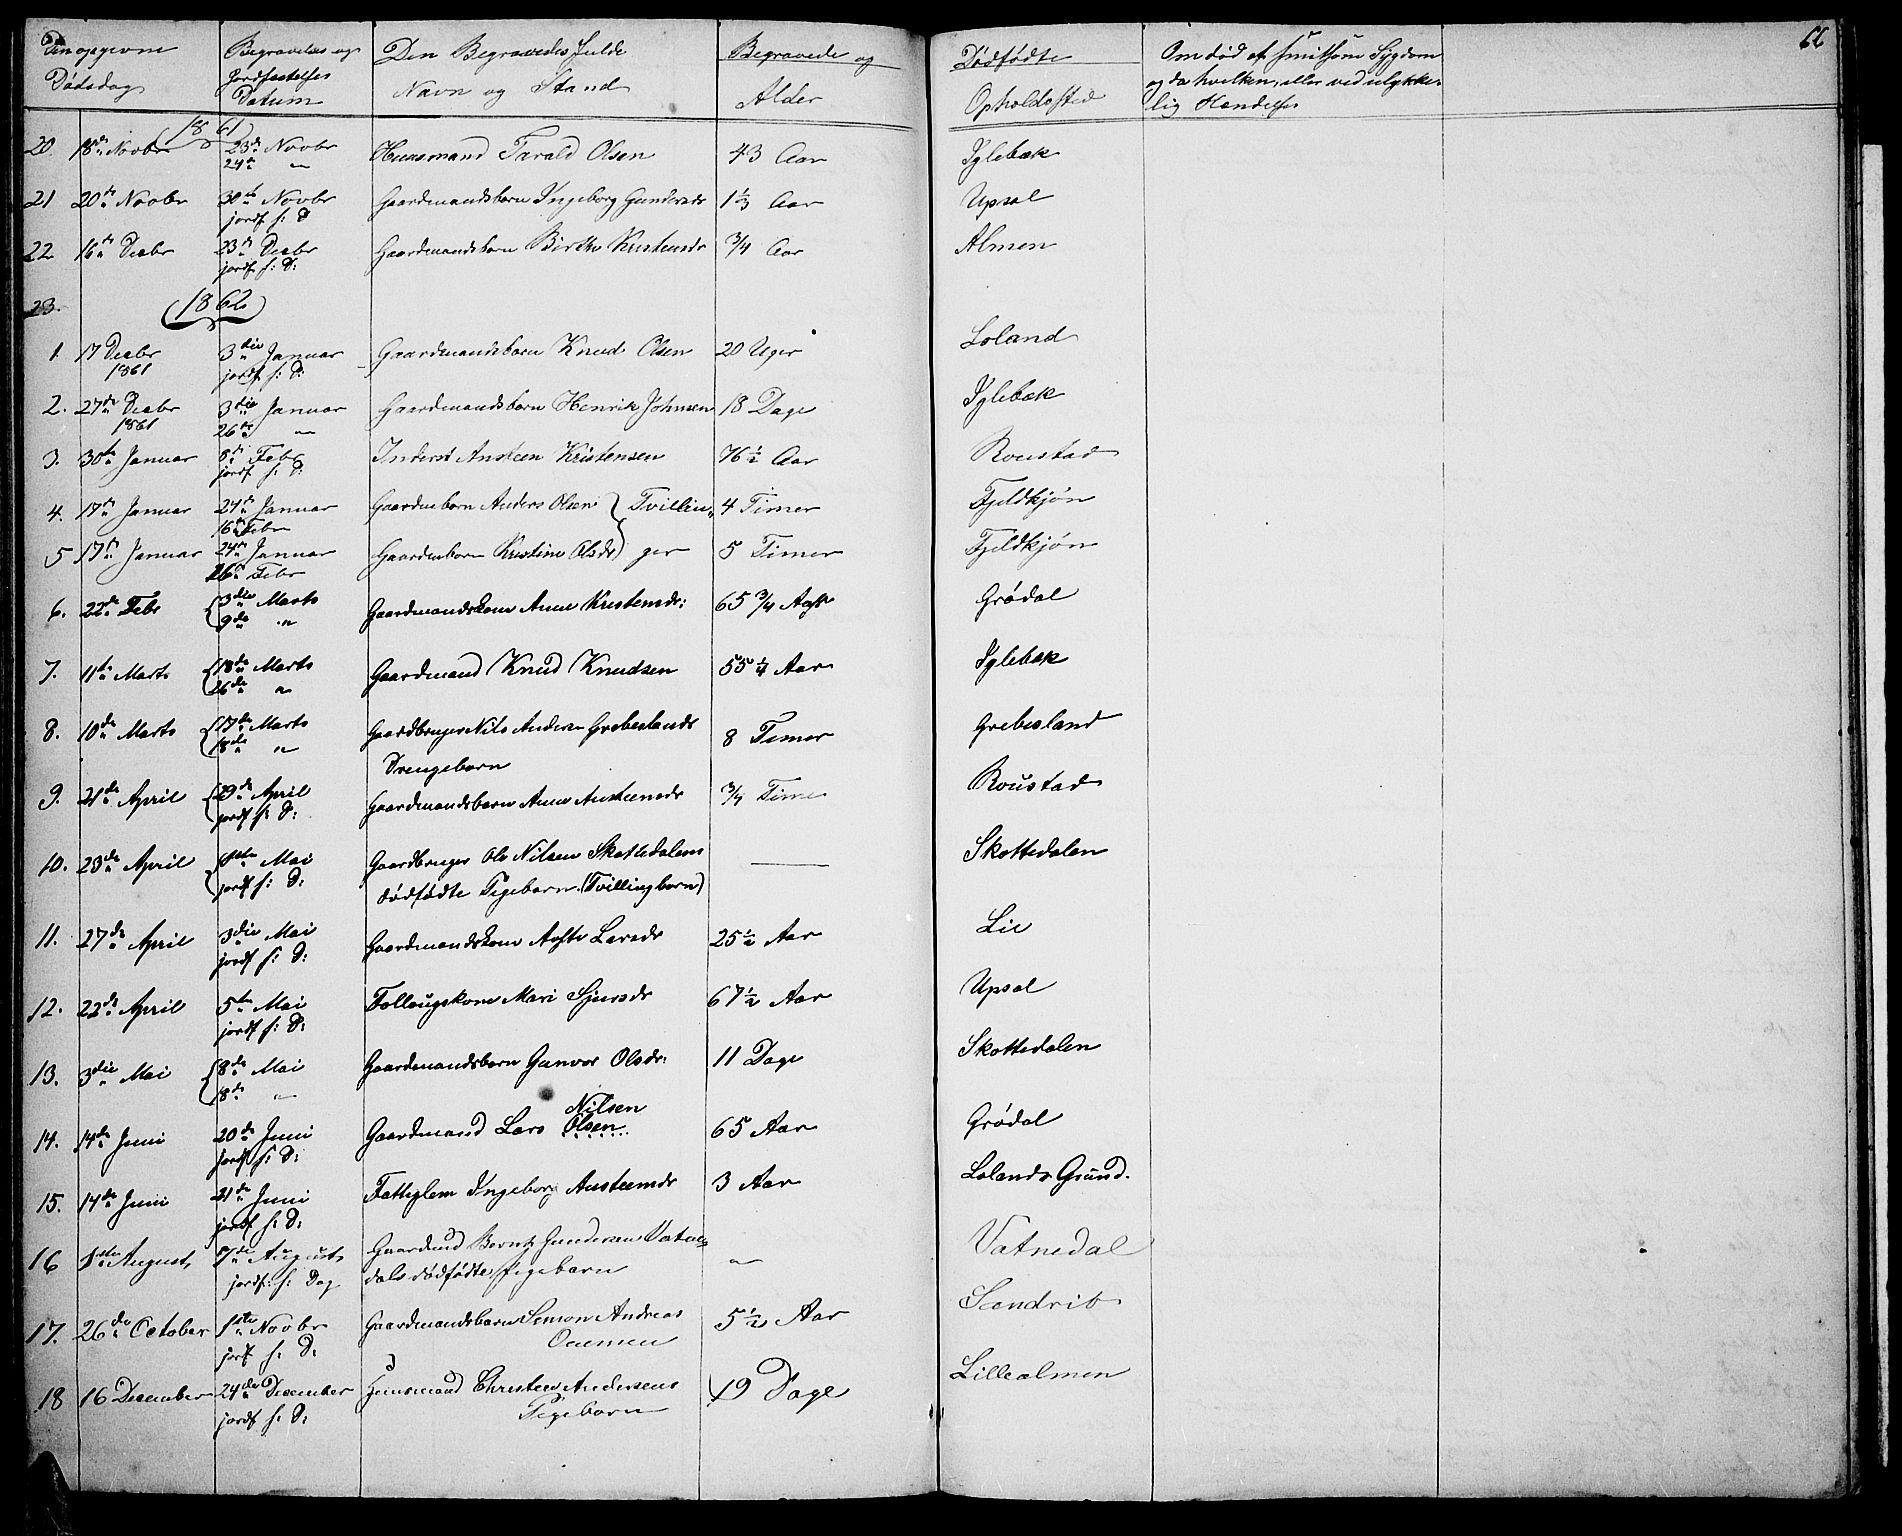 Den opgevne Dødsdag
Begravelses og Jordfæstelses Datum
Den Begravedes fulde Navn og Stand
Begravede og Alder
Dødfødte Opholdssted
Om død af smitsom Sygdom
og da hvilken, eller ved ulykke-
lig Hændelse
66
(1861)
20 18de Novbr 23de Novbr Huusmand Tarald Olsen 43 Aar Iglebæk
24de "
21 20de Novbr 30te Novbr Gaardmandsbarn Ingeborg Gundersdr 1 1/3 Aar Upsal
jordf s: D
22 16de Decbr 23de Decbr Gaardmandsbarn Birthe Kristensdr 3/4 Aar Almen
jordf s: D:
23.
(1862)
1. 17 Decbr 3die Januar Gaardmandsbarn Knud Olsen 20 Uger Loland
1861 jordf s: D:
2. 27de Decbr 3die Januar Gaardmandsbarn Henrik Johnsen 18 Dage Iglebæk
1861 26de "
3. 30te Januar 8de Febr Inderst Ansteen Kristensen 76 1/2 Aar Roustad
jordf s: D:
4. 17de Januar 24de Januar Gaardmbarn Anders Olsen } Tvillin= 4 Timer Fjeldkjøn
16de Febr
5 17de Januar 24de Januar Gaardmbarn Kristine Olsdr } ger 5 Timer Fjeldkjøn
16de Febr
6. 22de Febr { 3die Marts Gaardmandskone Anne Kristensdr: 65 3/4 Aar Grødal
9de "
7. 11te Marts { 18de Marts Gaardmand Knud Knudsen 55 1/4 Aar Iglebæk
26de "
8. 10de Marts { 17de Marts Gaardbruger Nils Andersen Grebeslands 8 Timer Grebesland
18de "
Drengebarn
9. 21de April { 29de April Gaardmandsbarn Anne Ansteensdr 3/4 Time Roustad
jordf s: D:
10. 23de April { 1ste Mai Gaardbruger Ole Nilsen Skottedalens — Skottedalen
jordf s: D: dødfødte Pigebarn (Tvillingbarn)
11. 27de April 3die Mai Gaardmandskone Aaste Larsdr 25 1/2 Aar Lie
jordf s: D:
12. 22de April 5te Mai Follaugskone Mari Sjursdr 67 1/2 Aar Upsal
jordf s: D:
13. 3die Mai { 8de Mai Gaardmandsbarn Gunvor Olsdr: 11 Dage Skottedalen
18de "
Nilsen
14. 14de Juni 20de Juni Gaardmand Lars Olsen 65 Aar Grødal
jordf s: D:
15. 14de Juni 21de Juni Fattiglem Ingeborg Ansteensdr 3 Aar Lolands Grund.
jordf s: D:
16 1ste August 7de August Gaardmd Berntz Gundersen Vatne= " Vatnedal
jordf: s: Dag dals dødfødte Pigebarn
17. 26de October 1ste Novbr Gaardmandsbarn Simon Andreas 5 1/2 Aar Sandrib
jordf s: D: Onensen
18 16 December 24de December Huusmand Christen Andersens 19 Dage Lillealmen
jordf s: D: Pigebarn